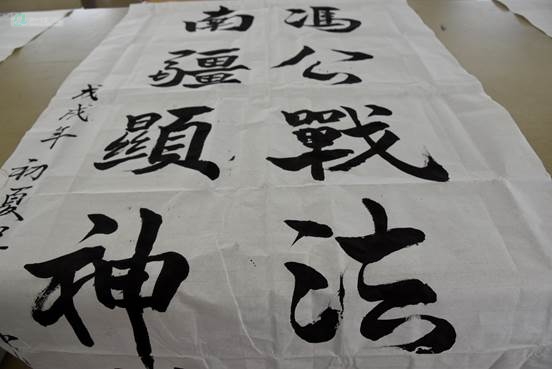 馮公戰法
南疆顯神
戊戌年初夏